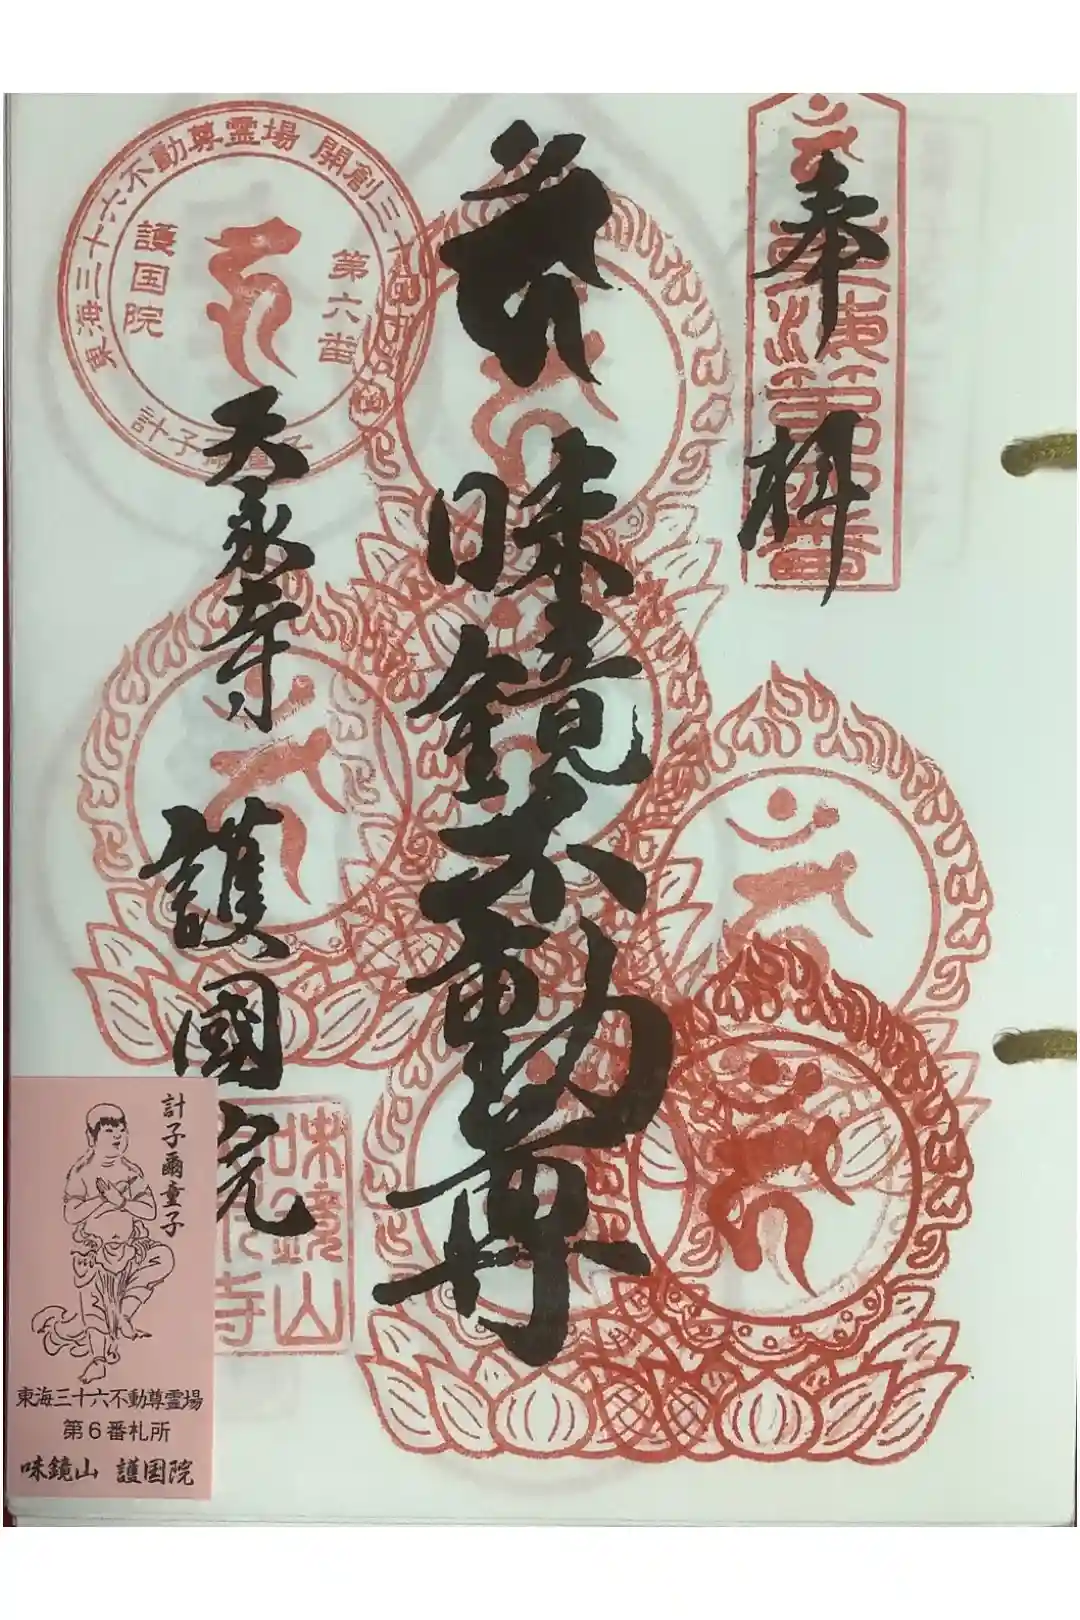 奉拝
味鏡不動尊
天永寺
護國院
東海三十六不動尊霊場 開創三十
第六番
護国院
計子爾童子
味鏡山
寺
計子爾童子
東海三十六不動尊霊場
第6番札所
味鏡山 護国院